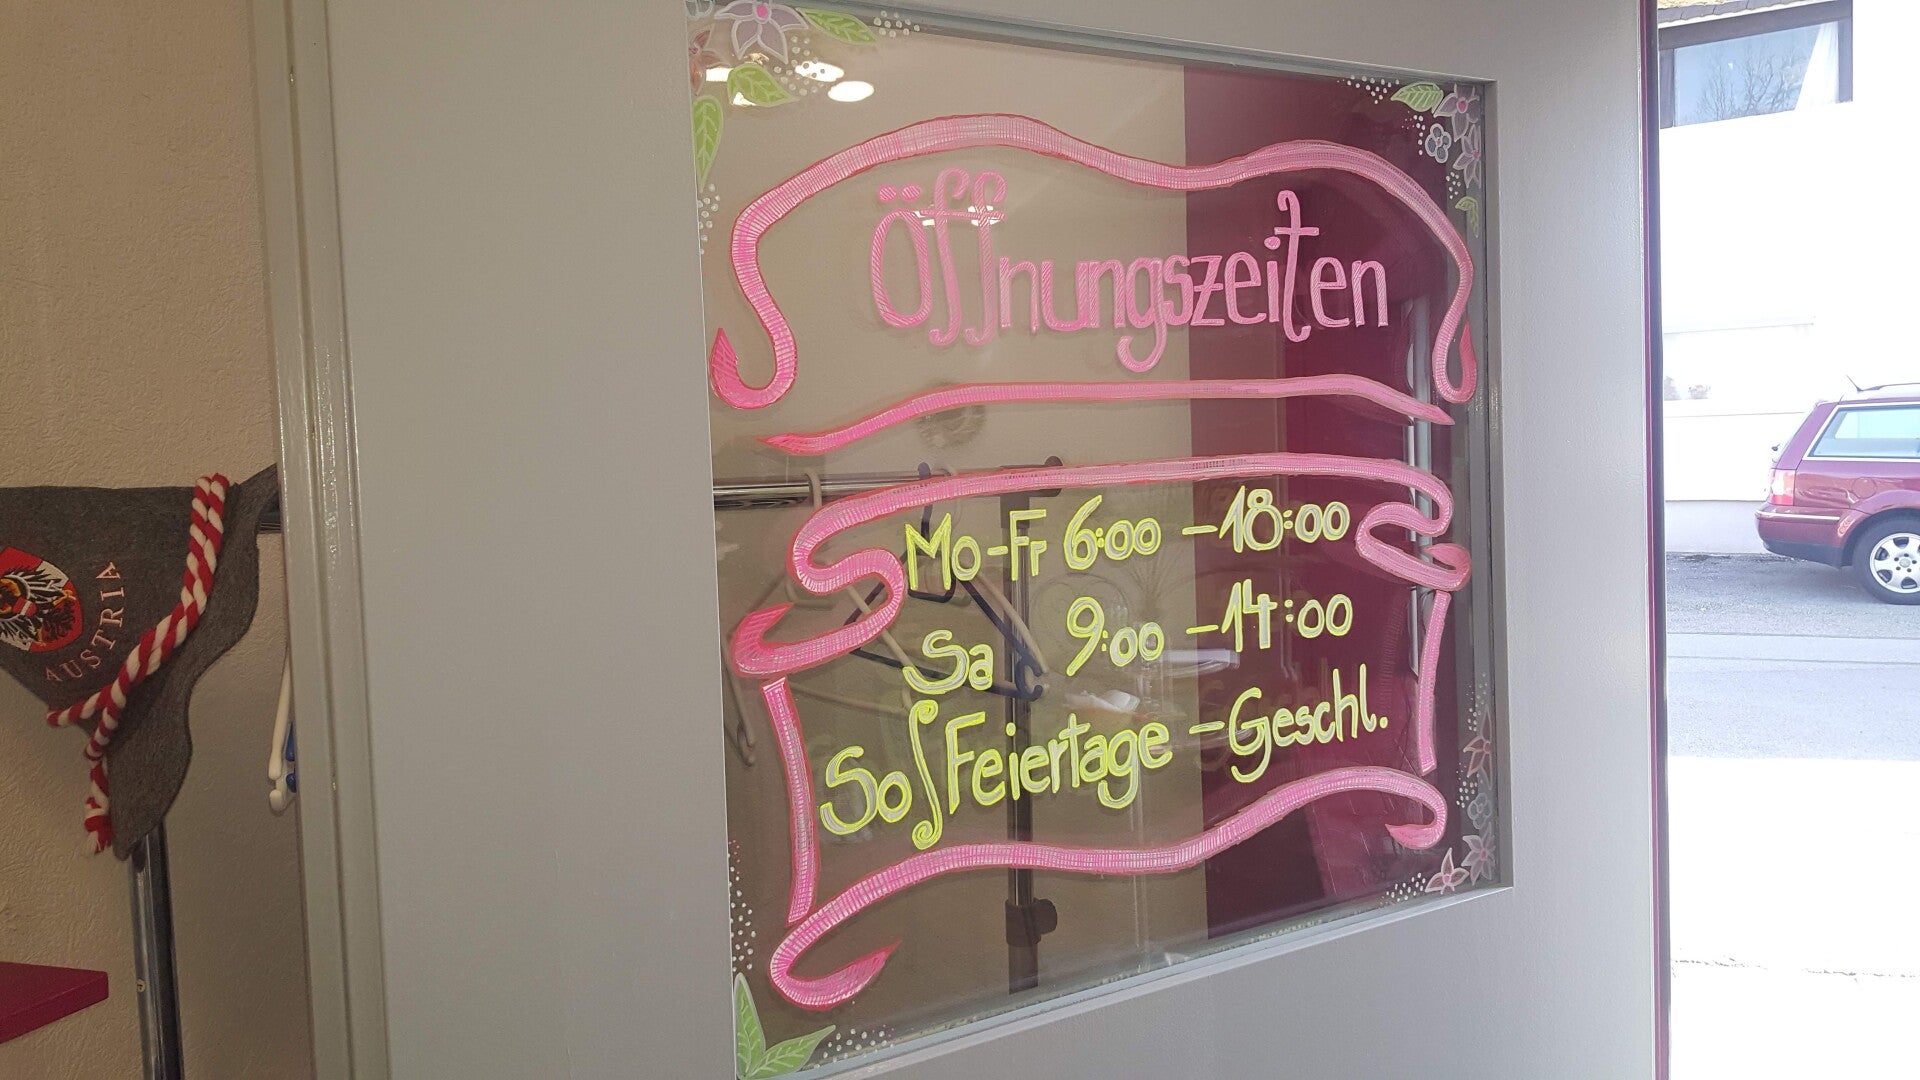 Öffnungszeiten
Mo-Fr 6:00 - 18:00
Sa 9:00 - 14:00
So/Feiertage - Geschl.
AUSTRIA